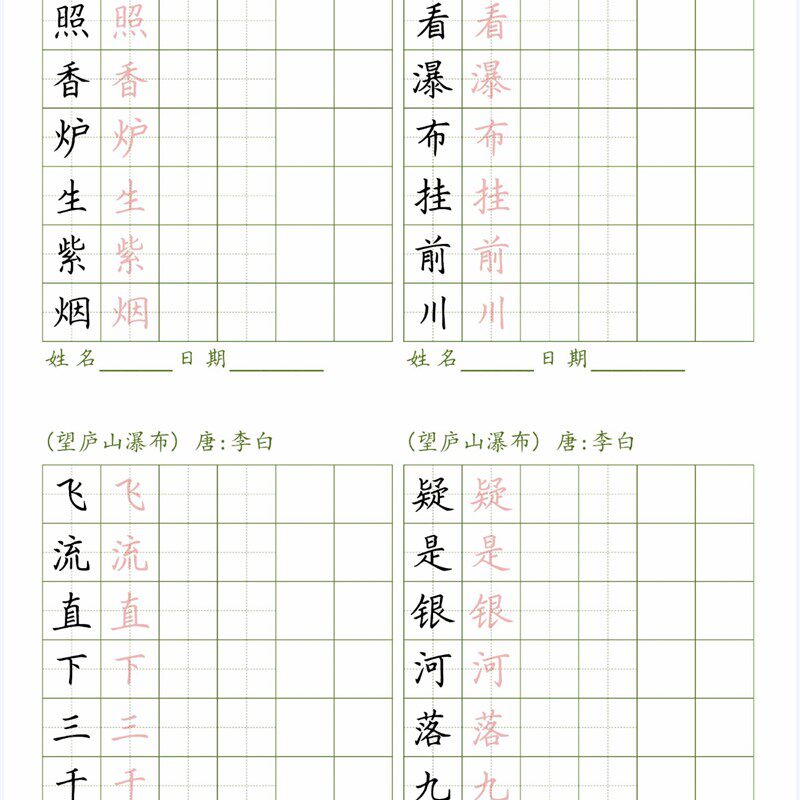 照 照
香 香
炉 炉
生 生
紫 紫
烟 烟
姓名 日期
看 看
瀑 瀑
布 布
挂 挂
前 前
川 川
姓名 日期
(望庐山瀑布) 唐:李白
飞 飞
流 流
直 直
下 下
三 三
千 千
(望庐山瀑布) 唐:李白
疑 疑
是 是
银 银
河 河
落 落
九 九